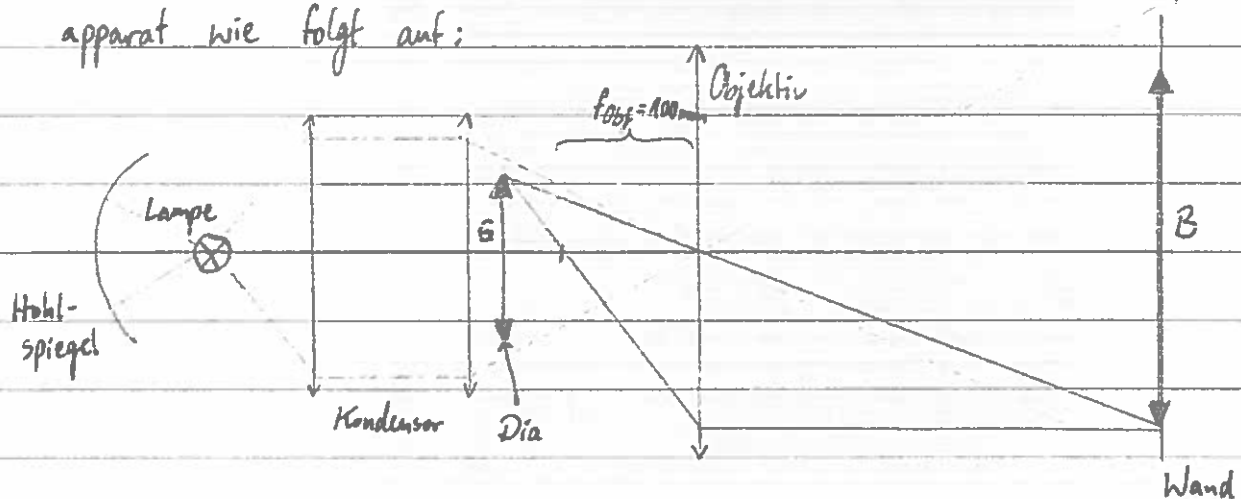 apparat wie folgt auf:
Objektiv
fObj = 100mm
Lampe
G
B
Hohl-
spiegel
Kondensor
Dia
Wand